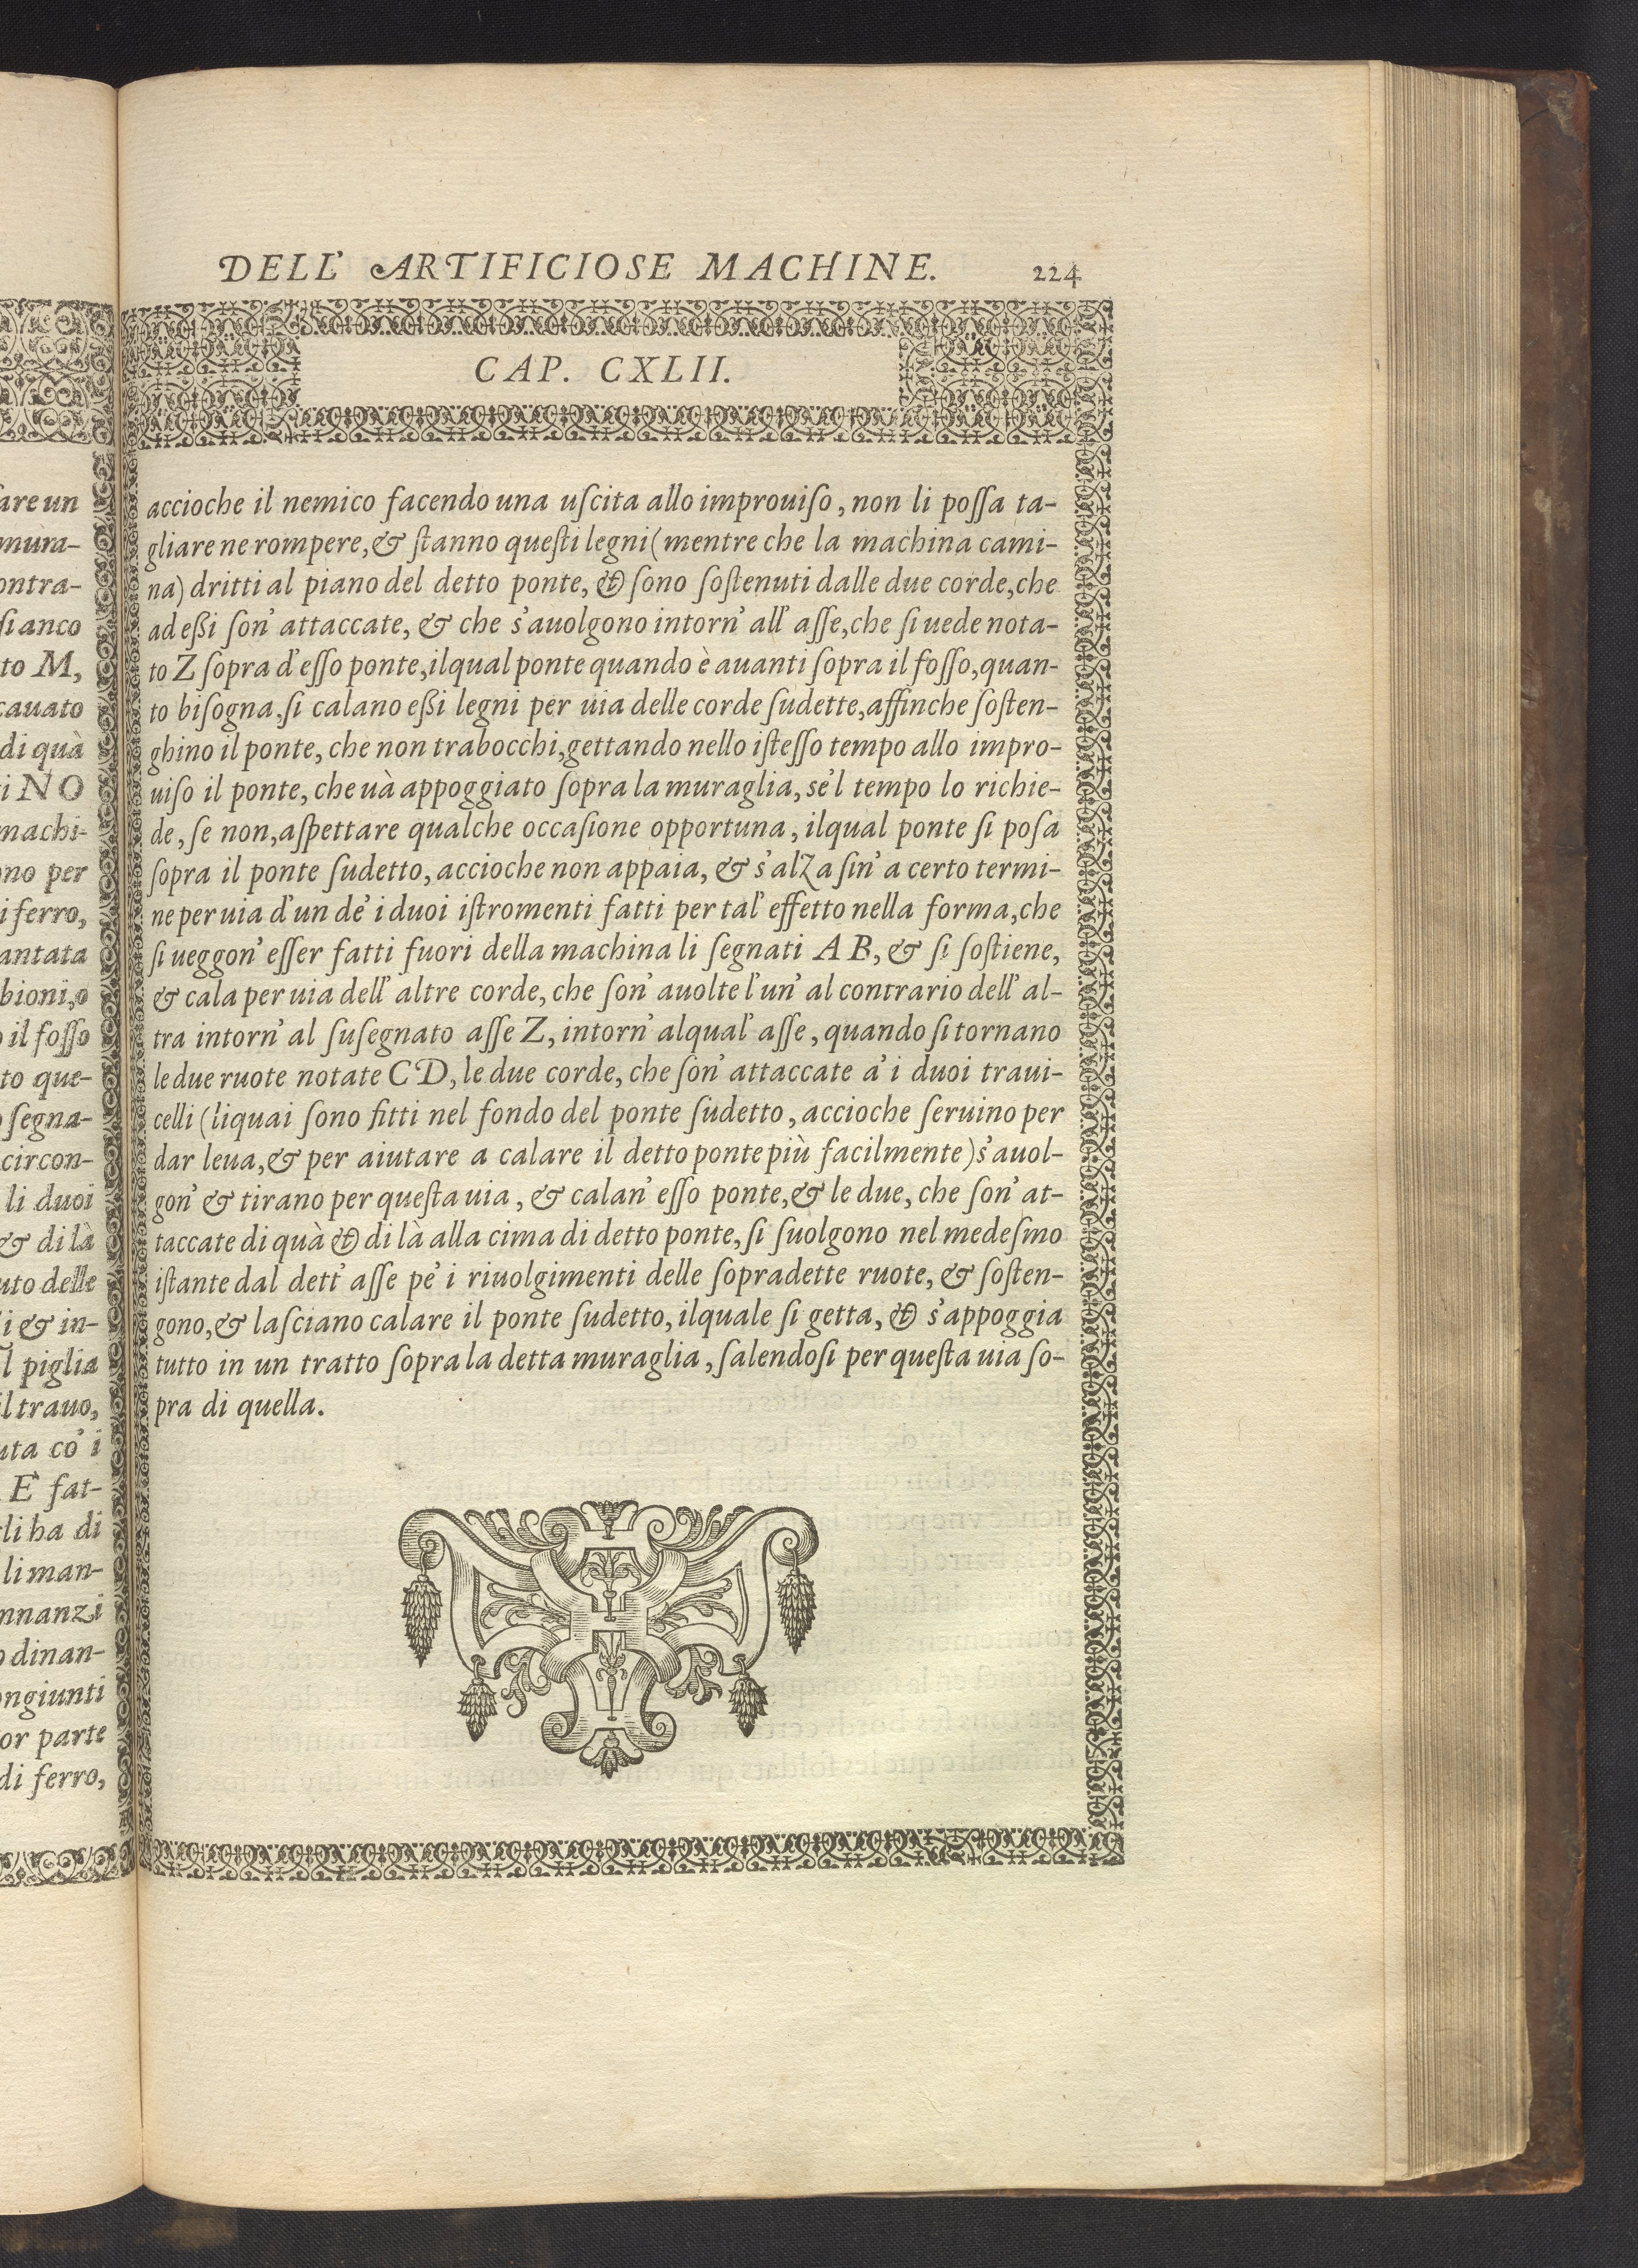 DELL' ARTIFICIOSE MACHINE. 224
CAP. CXLII.
accioche il nemico facendo una uſcita allo improuiſo, non li poſſa ta-
gliare ne rompere, & ſtanno queſti legni (mentre che la machina cami-
na) dritti al piano del detto ponte, & ſono ſoſtenuti dalle due corde, che
ad eßi ſon' attaccate, & che s'auolgono intorn' all' aſſe, che ſi uede nota-
to Z ſopra d'eſſo ponte, ilqual ponte quando è auanti ſopra il foſſo, quan-
to biſogna, ſi calano eßi legni per uia delle corde ſudette, affinche ſoſten-
ghino il ponte, che non trabocchi, gettando nello iſteſſo tempo allo impro-
uiſo il ponte, che uà appoggiato ſopra la muraglia, se'l tempo lo richie-
de, ſe non, aſpettare qualche occaſione opportuna, ilqual ponte ſi poſa
ſopra il ponte ſudetto, accioche non appaia, & s'alza ſin' a certo termi-
ne per uia d'un de' i duoi iſtromenti fatti per tal' effetto nella forma, che
ſi ueggon' eſſer fatti fuori della machina li ſegnati A B, & ſi ſoſtiene,
& cala per uia dell' altre corde, che ſon' auolte l'un' al contrario dell' al-
tra intorn' al ſuſegnato aſſe Z, intorn' alqual' aſſe, quando ſi tornano
le due ruote notate C D, le due corde, che ſon' attaccate a' i duoi traui-
celli (liquai ſono fitti nel fondo del ponte ſudetto, accioche ſeruino per
dar leua, & per aiutare a calare il detto ponte più facilmente) s'auol-
gon' & tirano per queſta uia, & calan' eſſo ponte, & le due, che ſon' at-
taccate di quà & di là alla cima di detto ponte, ſi ſuolgono nel medeſmo
iſtante dal dett' aſſe pe' i riuolgimenti delle ſopradette ruote, & ſoſten-
gono, & laſciano calare il ponte ſudetto, ilquale ſi getta, & s'appoggia
tutto in un tratto ſopra la detta muraglia, ſalendoſi per queſta uia ſo-
pra di quella.